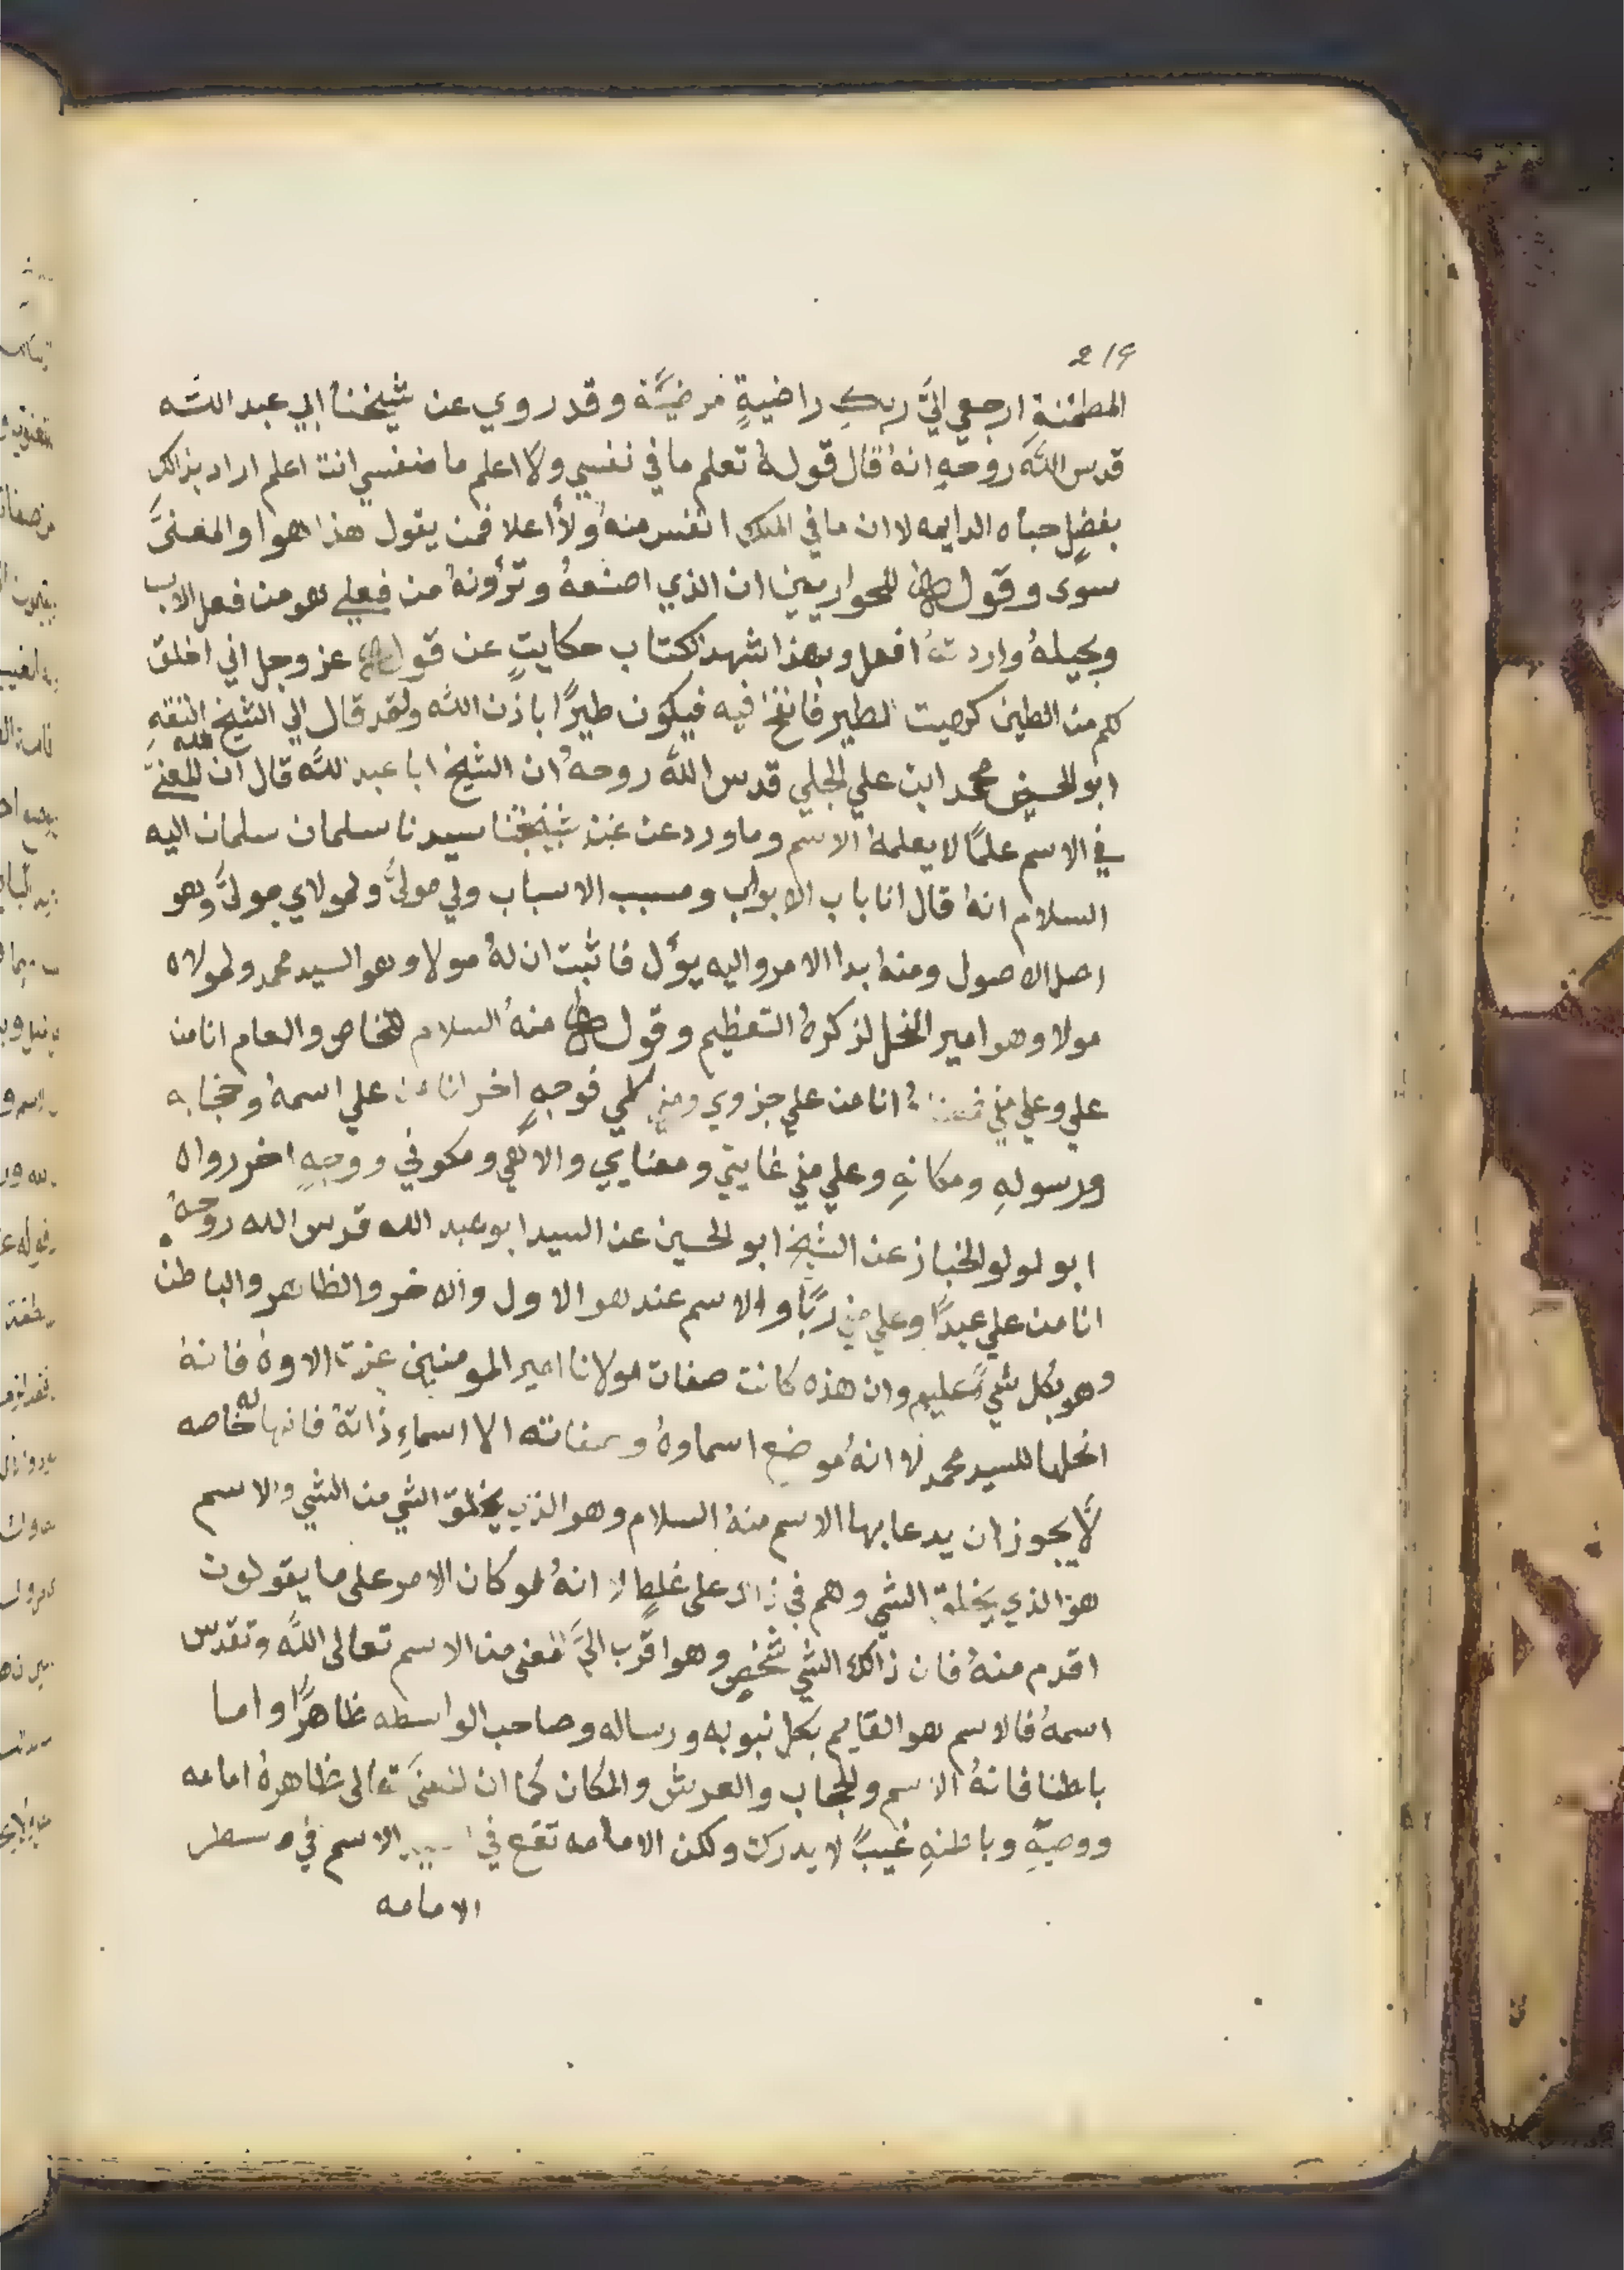 219
المطمئنة ارجعي اليَّ ربكِ راضيةٍ مرضيَّة وقد روي عن شيخنا ابي عبد اللَّه
قدس اللَّه روحهِ انهُ قال قولهُ تعلم ما في نفسي ولا اعلم ما منفسي انت اعلم اراد بذالك
بفضلٍ حباه الدايمه لا ان ما في الملك انفس منهُ ولا أعلا فمن يقول هذا هوا والمعنىَّ
سوى وقول للحواريين ان الذي اصنعهُ وترؤنهُ من فعلي هو من فعل الاب
وبحيلهُ واردتهُ افعل وبهذا شهد الكتاب حكايتٍ عن قول عز وجل اني اخلق
لكم من الطين كهيت الطير فانفخ فيه فيكون طيرًا باذن اللَّه ولقد قال لي الشيخ الثقه
ابو الحسين محمد ابن علي الجلي قدس اللَّه روحهُ ان الشيخ ابا عبد اللَّه قال ان للمعنىَّ
في الاسم علمًا لا يعلمهُ الاسم وما ورد عن شيخنا سيدنا سلمان سلمان اليه
السلام انهُ قال انا باب الابواب ومسبب الاسباب ولي مولىَّ ولمولاي مولىَّ وهو
اصل الاصول ومنهُ بدا الامر واليه يؤل فاثبت ان لهُ مولا وهو السيد محمد ولمولاه
مولا وهو امير النحل لذكرهُ التعظيم وقول منهُ السلام للخاص والعام انا من
علي وعلي مني انا من علي جزوي ومني كلي فوجهٍ اخر انا من علي اسمهُ وحجابه
ورسولهِ ومكانهِ وعلي مني غايتي ومعنايي والاهي ومكوني ووجهٍ اخر رواه
ابو لولو الخباز عن الشيخ ابو الحسين عن السيد ابو عبد الله قدس الله روحهُ
انا من علي عبدًا وعلي مني ربًا والاسم عند هو الاول والاخر والظاهر والباطن
وهو بكل شيٍ عليم وان هذه كانت صفات مولانا امير المومنين عزت الاوهُ فانهُ
انحلها للسيد محمد لا انهُ موضع اسماوهُ وصفاته الا اسماءِ ذاتهُ فانها لهُ خاصه
لَّا يجوز ان يدعا بها الاسم منهُ السلام وهو الذي يخلق الشي من الشي والاسم
هو الذي يخلق الشي وهم في ذالك على غلطٍ لا انهُ لو كان الامر على ما يقولون
اقدم منهُ فان ذالك الشي شخص وهو اقرب اليَّ المعنى من الاسم تعالى اللَّه وتقدس
اسمهُ فالاسم هو القايم بكل نبوبه ورساله وصاحب الواسطه ظاهرًا واما
باطنا فانهُ الاسم والحجاب والعرش والمكان كما ان المعنىَّ تعالى ظاهرهُ امامه
ووصيةِ وباطنهِ غيبٌ لا يدرك ولكن الامامه تقع في الاسم في وسطر
الامامه